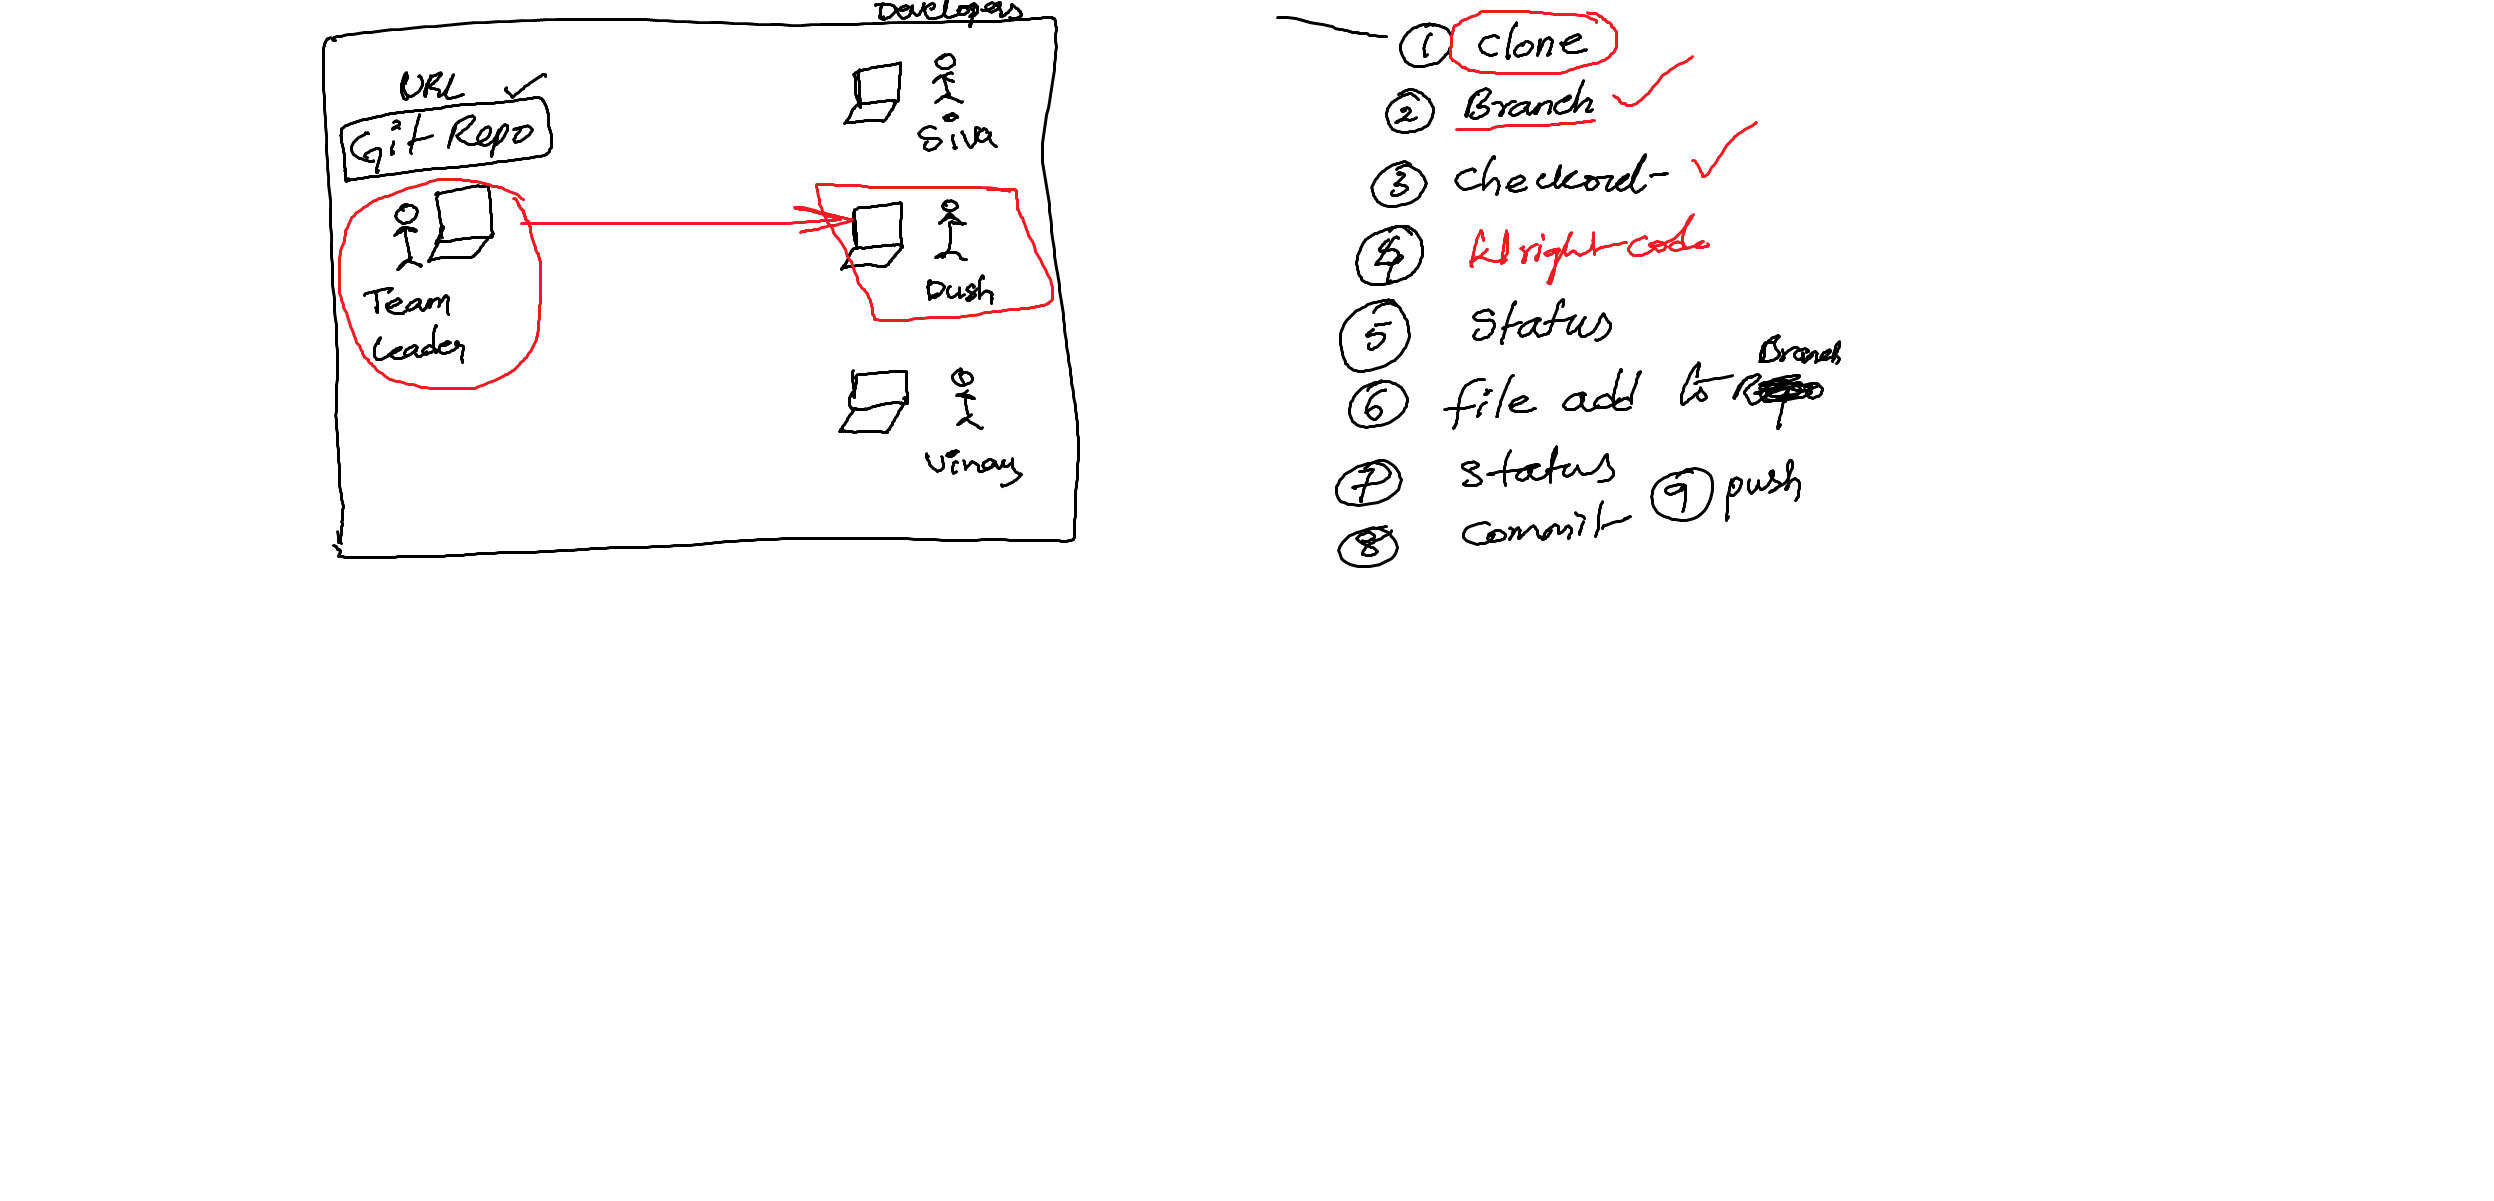 Developers
URL
Git-Repo
Siva
Team
Leader
Push
vinay
① clone
② Branch
③ checkout
④ Alright-code
⑤ status
⑥ file add to Branch
⑦ status
⑧ commit ⑨ push